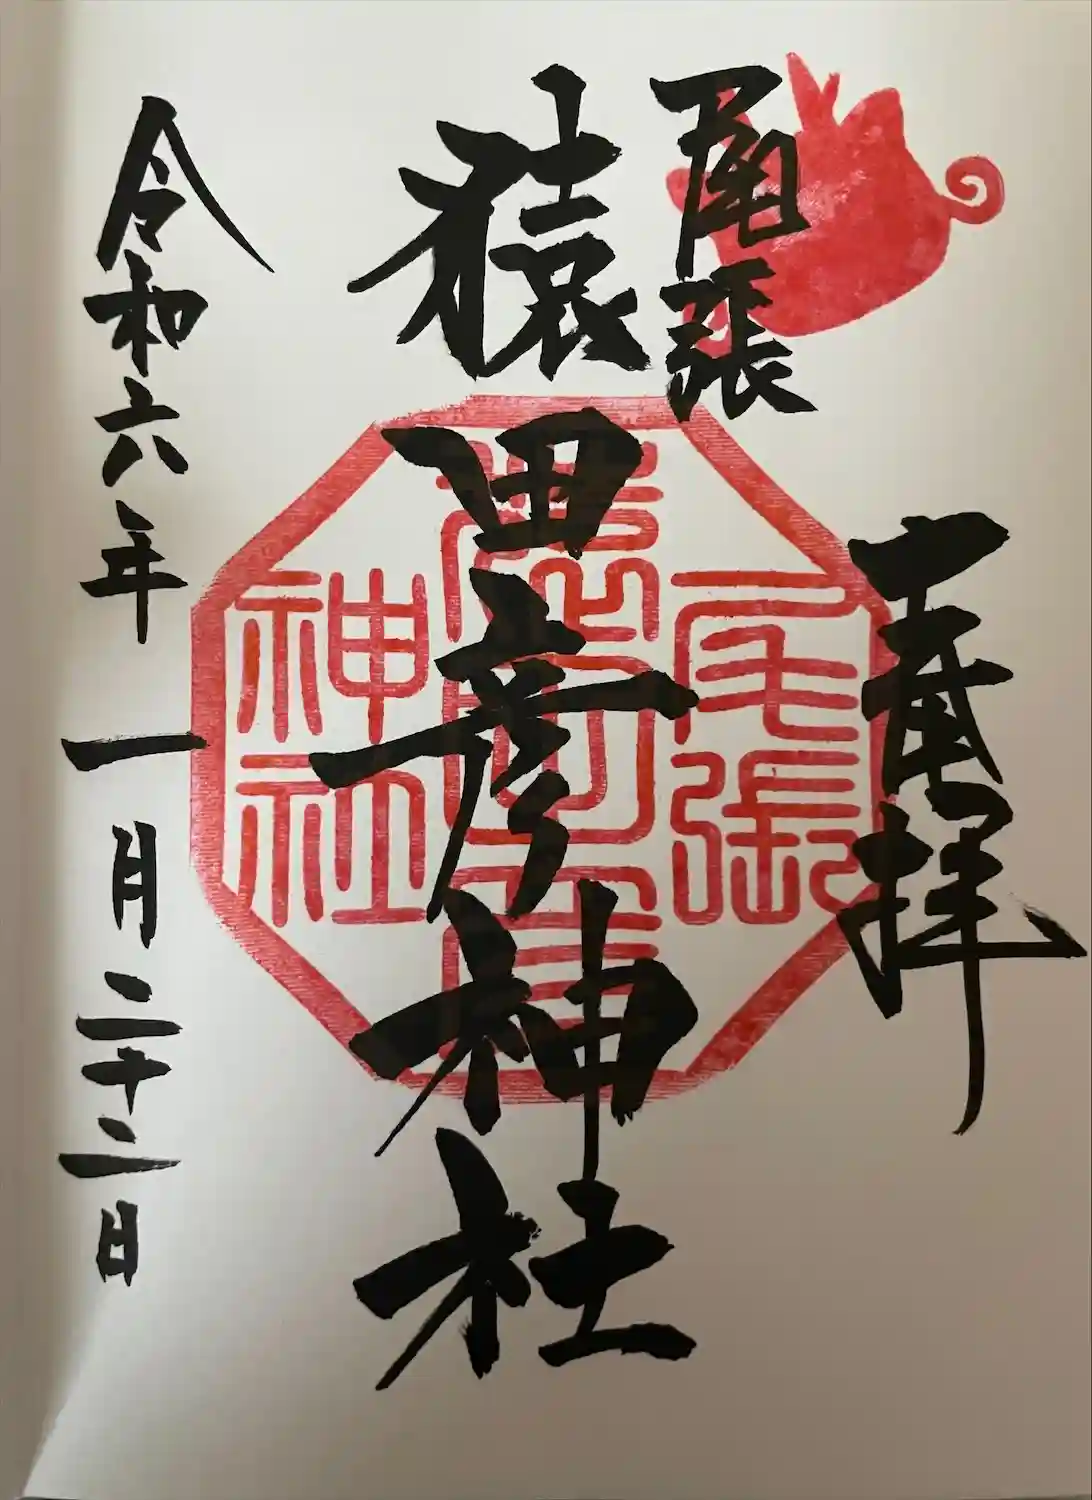 奉拝
尾張
猿田彦神社
尾張
猿田彦
神社
令和六年一月二十二日